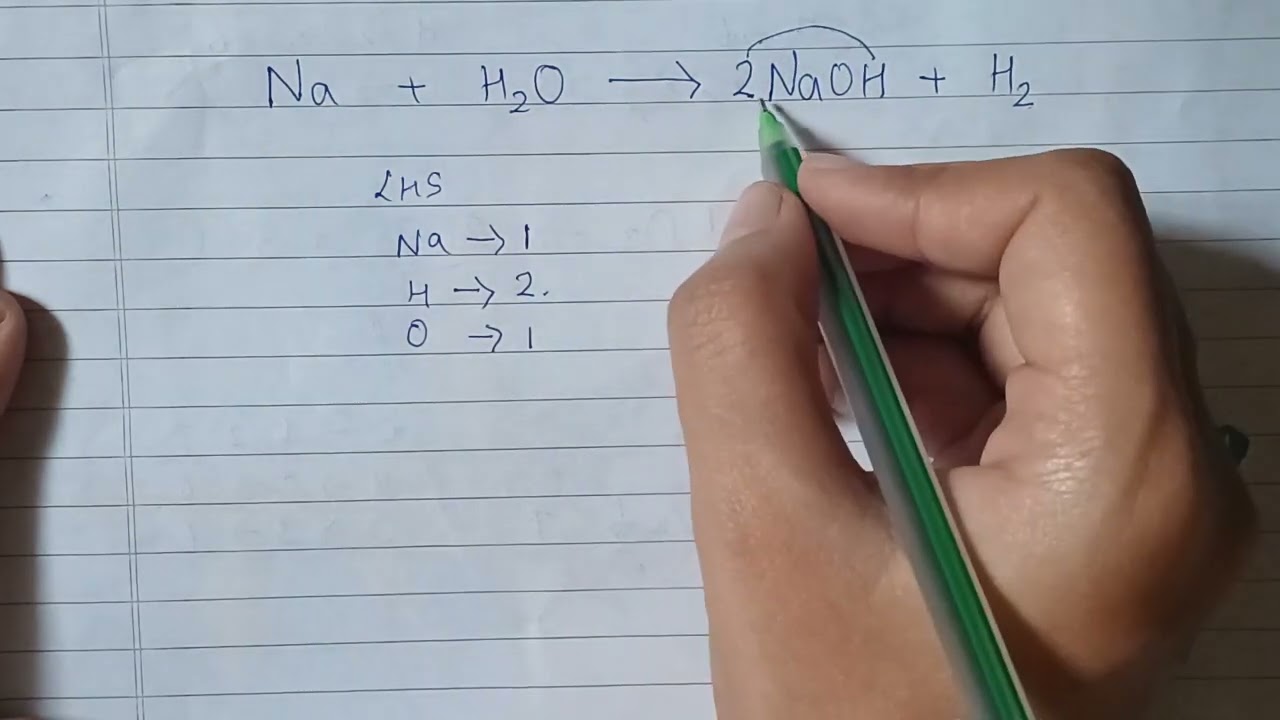 Na + H₂O ⟶ 2NaOH + H₂
LHS
Na → 1
H → 2.
O → 1